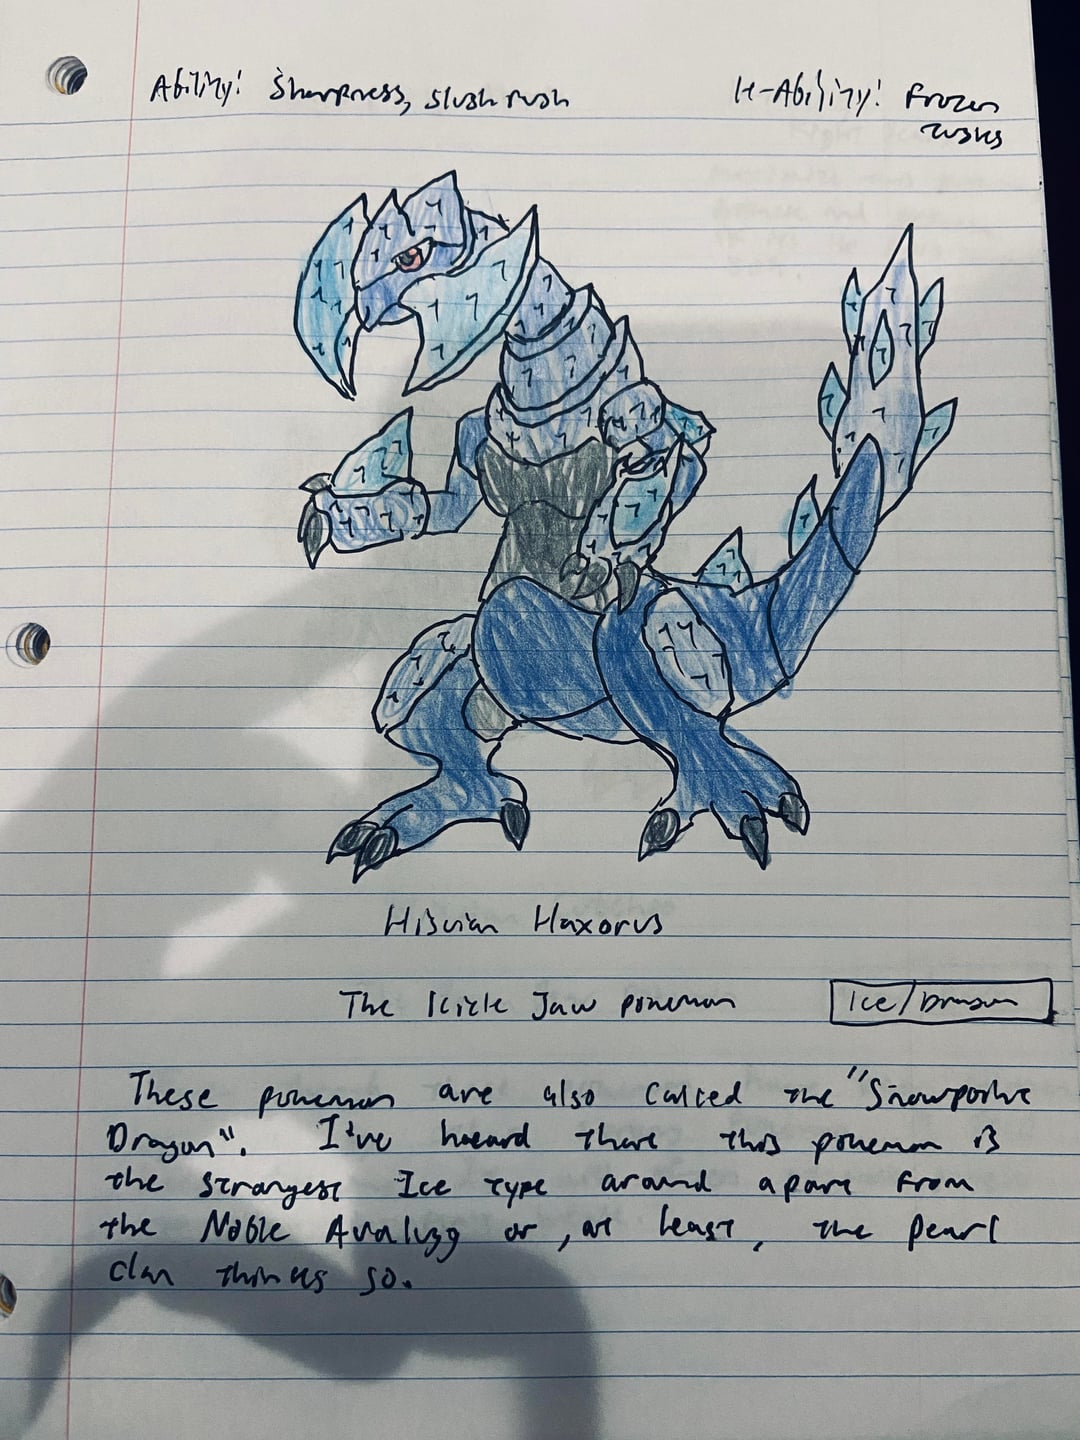 Ability: Sharpness, slush rush
H-Ability: Frozen
Tusks
Hisuian Haxorus
The Icicle Jaw pokemon
Ice/Dragon
These pokemon are also called the "Snowpoint
Dragon". I've heard that this pokemon is
the strongest Ice type around apart from
the Noble Avalugg or, at least, the pearl
clan thinks so.